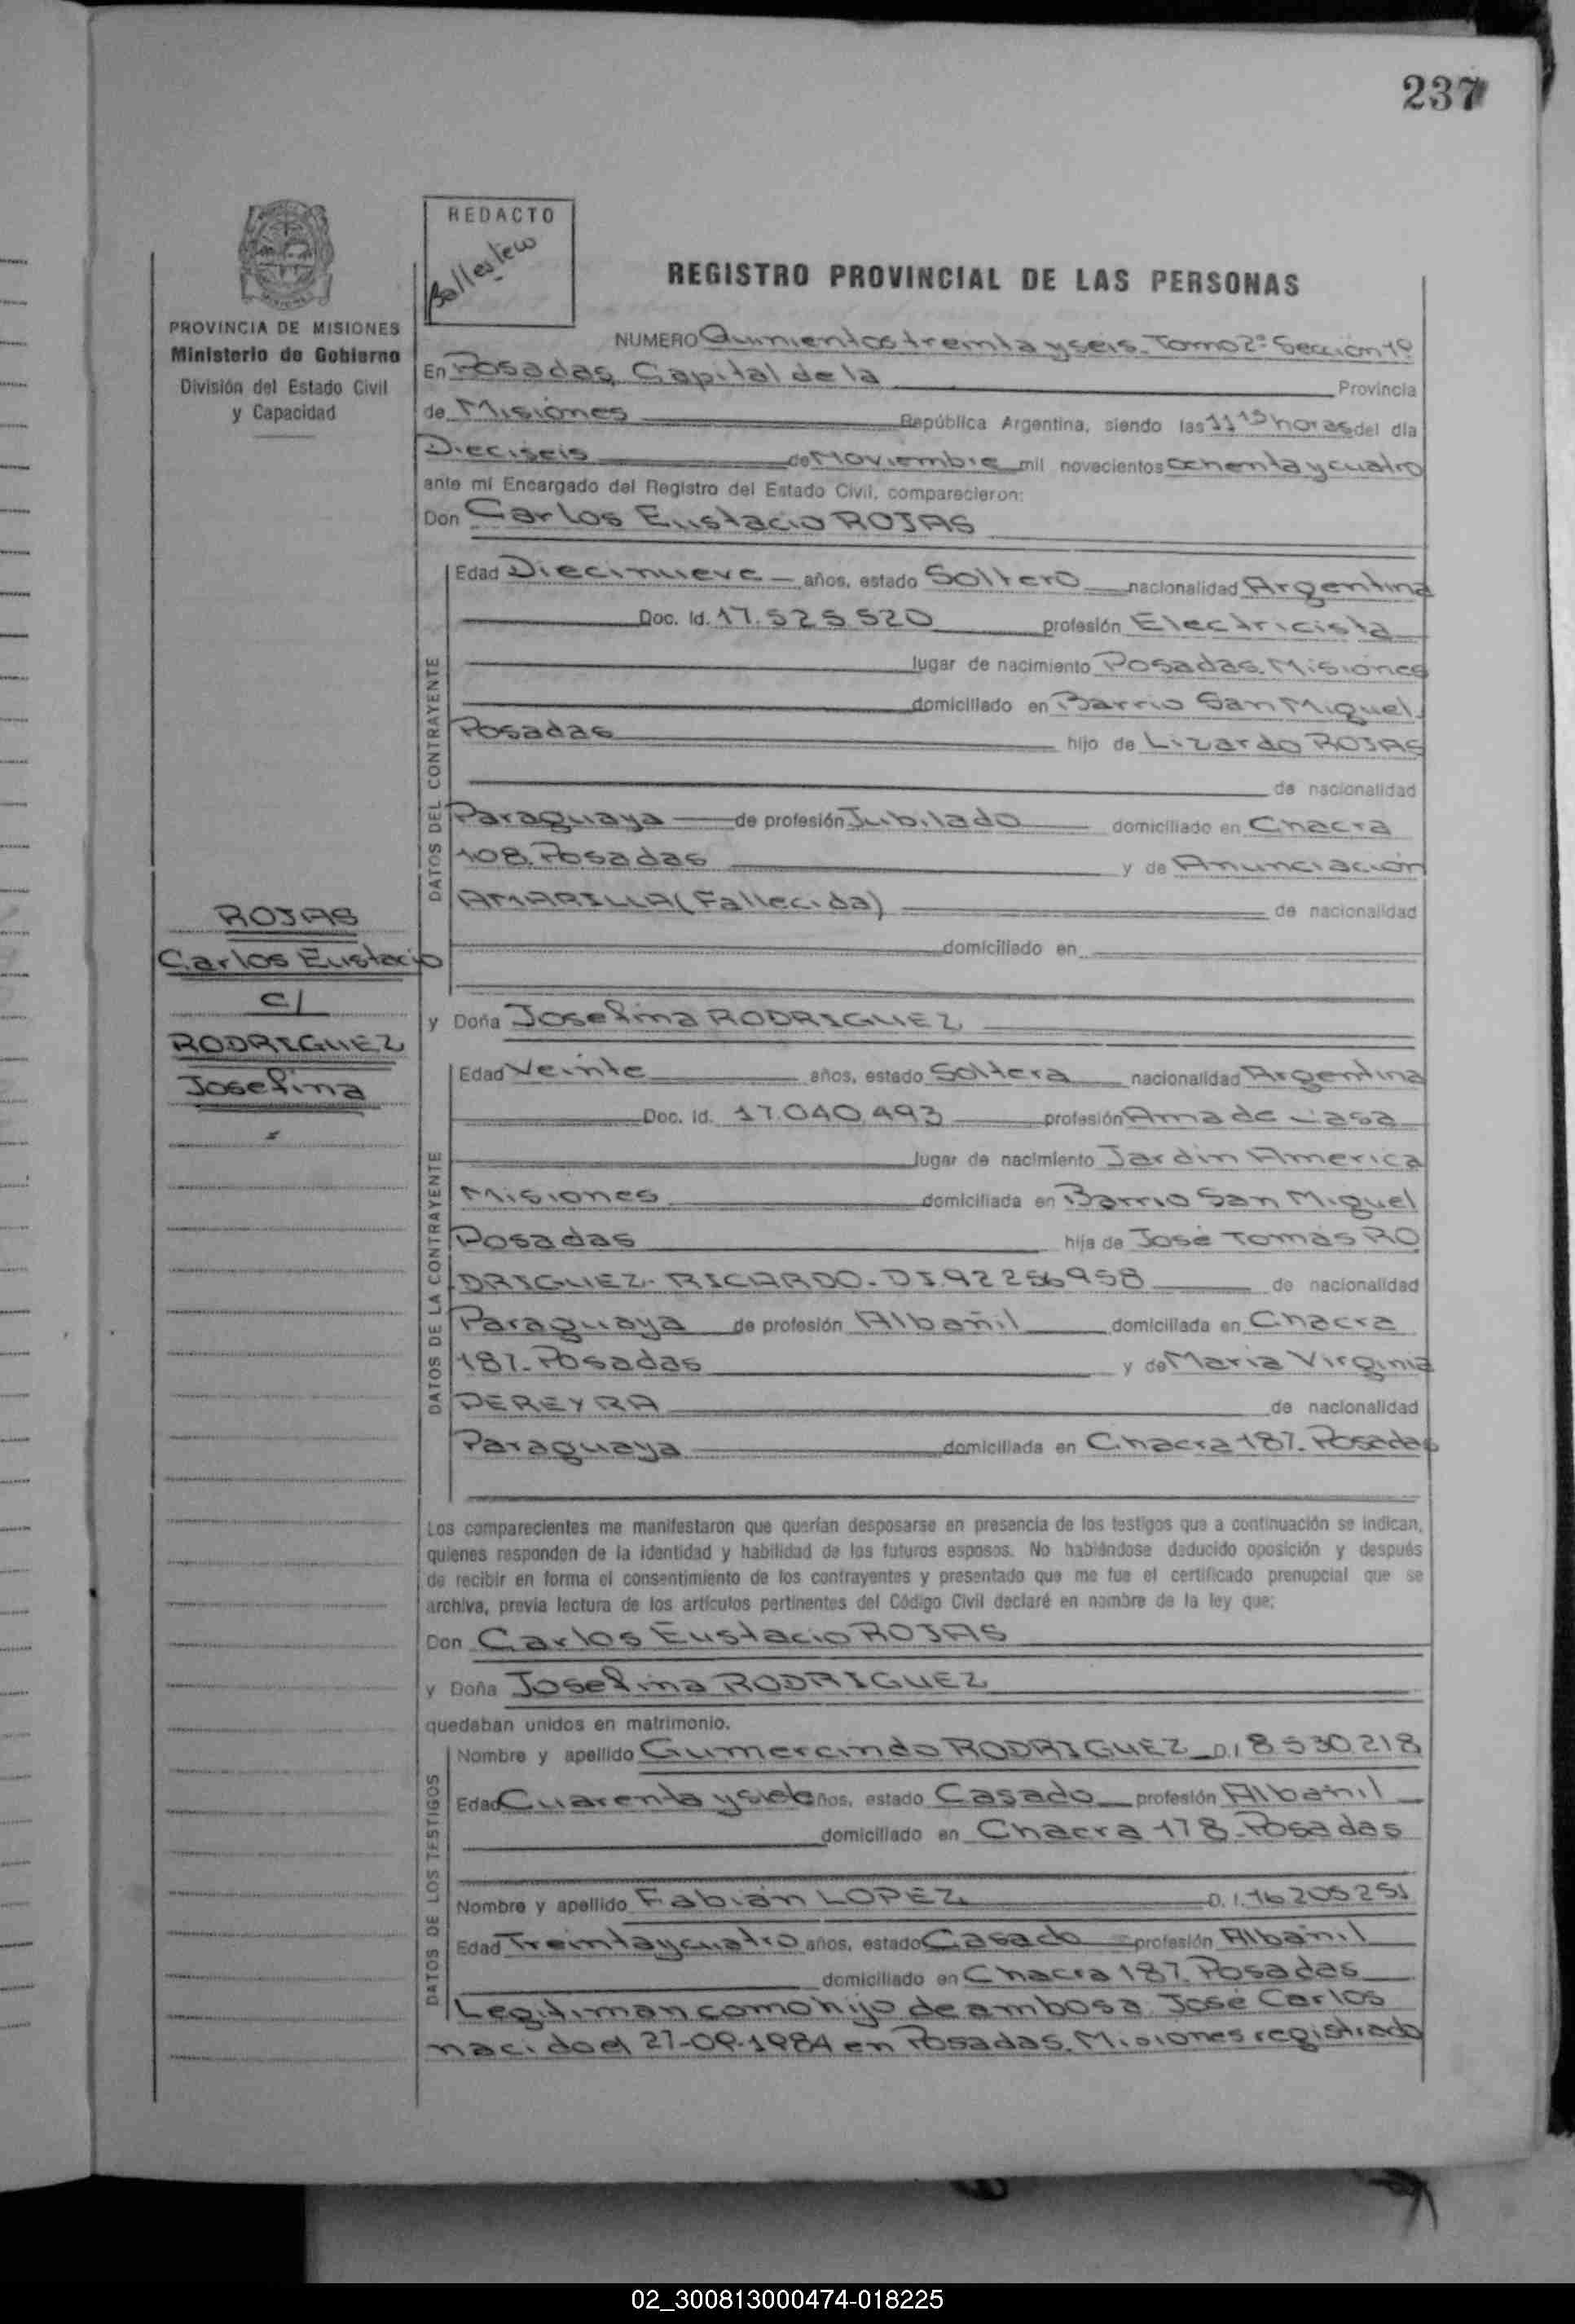 237
REDACTO
Ballestew
PROVINCIA DE MISIONES
Ministerio de Gobierno
División del Estado Civil
y Capacidad
REGISTRO PROVINCIAL DE LAS PERSONAS
NUMERO Quinientos treinta y seis. Tomo 2º Seccion 1º
En Posadas, Capital de la Provincia
de Misiones República Argentina, siendo las 11 15 horas del día
Dieciseis de Noviembre mil novecientos ochenta y cuatro
ante mí Encargado del Registro del Estado Civil, comparecieron:
Don Carlos Eustacio ROJAS
DATOS DEL CONTRAYENTE
Edad Diecinueve años, estado Soltero nacionalidad Argentina
Doc. Id. 17.525.520 profesión Electricista
lugar de nacimiento Posadas. Misiones
domiciliado en Barrio San Miguel
Posadas hijo de Lizardo ROJAS
de nacionalidad
Paraguaya de profesión Jubilado domiciliado en Chacra
108. Posadas y de Anunciación
AMARILLA (Fallecida) de nacionalidad
domiciliado en
ROJAS
Carlos Eustacio
c/
RODRIGUEZ
Josefina
y Doña Josefina RODRIGUEZ
DATOS DE LA CONTRAYENTE
Edad Veinte años, estado Soltera nacionalidad Argentina
Doc. Id. 17.040.493 profesión Ama de Casa
lugar de nacimiento Jardin America
Misiones domiciliada en Barrio San Miguel
Posadas hija de José Tomás RO
DRIGUEZ - RICARDO - DI.92256958 de nacionalidad
Paraguaya de profesión Albañil domiciliada en Chacra
187. Posadas y de Maria Virginia
PEREYRA de nacionalidad
Paraguaya domiciliada en Chacra 187. Posadas
Los comparecientes me manifestaron que querían desposarse en presencia de los testigos que a continuación se indican,
quienes responden de la identidad y habilidad de los futuros esposos. No habiéndose deducido oposición y después
de recibir en forma el consentimiento de los contrayentes y presentado que me fue el certificado prenupcial que se
archiva, previa lectura de los artículos pertinentes del Código Civil declaré en nombre de la ley que:
Don Carlos Eustacio ROJAS
y Doña Josefina RODRIGUEZ
quedaban unidos en matrimonio.
DATOS DE LOS TESTIGOS
Nombre y apellido Gumercindo RODRIGUEZ D.I 8530218
Edad Cuarenta y siete años, estado Casado profesión Albañil
domiciliado en Chacra 178. Posadas
Nombre y apellido Fabián LOPEZ D.I.16205251
Edad Treinta y cuatro años, estado Casado profesión Albañil
domiciliado en Chacra 187. Posadas
Legitiman como hijo de ambos a José Carlos
nacido el 27-09-1984 en Posadas. Misiones registrado
02_300813000474-018225